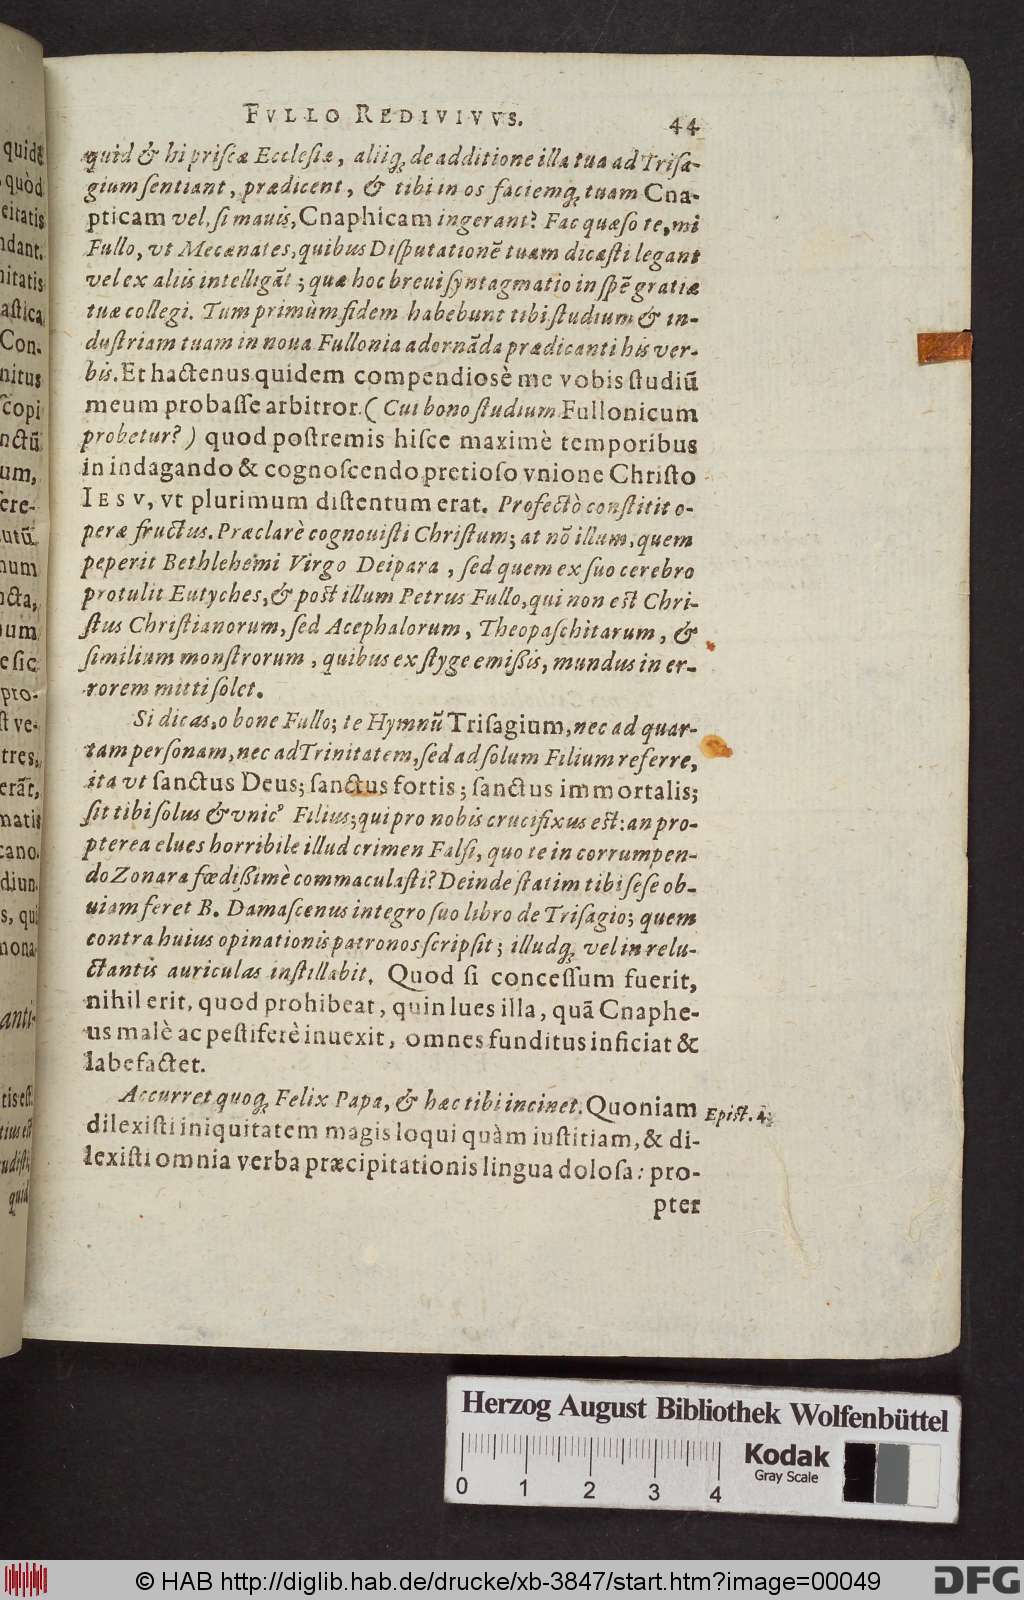 FVLLO REDIVIVVS.
44
quid & hi priscæ Ecclesiæ, aliiq; de additione illa tua ad Trisa-
gium sentiant, prædicent, & tibi in os faciemq; tuam Cna-
pticam vel, si mauis, Cnaphicam ingerant? Fac quæso te, mi
Fullo, vt Mecænates, quibus Disputationẽ tuam dicasti legant
vel ex aliis intelligãt; quæ hoc breui syntagmatio in spẽ gratiæ
tuæ collegi. Tum primùm fidem habebunt tibi studium & in-
dustriam tuam in noua Fullonia adornãda prædicanti his ver-
bis. Et hactenus quidem compendiosè me vobis studiũ
meum probasse arbitror. (Cui bono studium Fullonicum
probetur?) quod postremis hisce maximè temporibus
in indagando & cognoscendo pretioso vnione Christo
IESV, vt plurimum distentum erat. Profectò constitit o-
peræ fructus. Præclarè cognouisti Christum; at nõ illum, quem
peperit Bethlehemi Virgo Deipara, sed quem ex suo cerebro
protulit Eutyches, & post illum Petrus Fullo, qui non est Chri-
stus Christianorum, sed Acephalorum, Theopaschitarum, &
similium monstrorum, quibus ex styge emißis, mundus in er-
rorem mitti solet.
Si dicas, o bone Fullo; te Hymnũ Trisagium, nec ad quar-
tam personam, nec ad Trinitatem, sed ad solum Filium referre,
ita vt sanctus Deus; sanctus fortis; sanctus immortalis;
sit tibi solus & vnicꝰ Filius; qui pro nobis crucifixus est: an pro-
pterea elues horribile illud crimen Falsi, quo te in corrumpen-
do Zonara fœdißimè commaculasti? Deinde statim tibi sese ob-
uiam feret B. Damascenus integro suo libro de Trisagio; quem
contra huius opinationis patronos scripsit; illudq; vel in relu-
ctantis auriculas instillabit. Quod si concessum fuerit,
nihil erit, quod prohibeat, quin lues illa, quã Cnaphe-
us malè ac pestiferè inuexit, omnes funditus inficiat &
labefactet.
Accurret quoq; Felix Papa, & hæc tibi incinet. Quoniam
Epist. 4.
dilexisti iniquitatem magis loqui quàm iustitiam, & di-
lexisti omnia verba præcipitationis lingua dolosa: pro-
pter
quidẽ
quòd
eitatis
ndant.
nitatis
astica
Con-
nitus
scopi
nctũ
um,
sere-
utũ
num
ncta,
num
e sic
pro-
st ve-
tres,
erãt,
matis
cano.
diun-
s, qui
nona
anti-
tis est
tius est
udisti;
quid
Herzog August Bibliothek Wolfenbüttel
Kodak
Gray Scale
0 1 2 3 4
© HAB http://diglib.hab.de/drucke/xb-3847/start.htm?image=00049
DFG